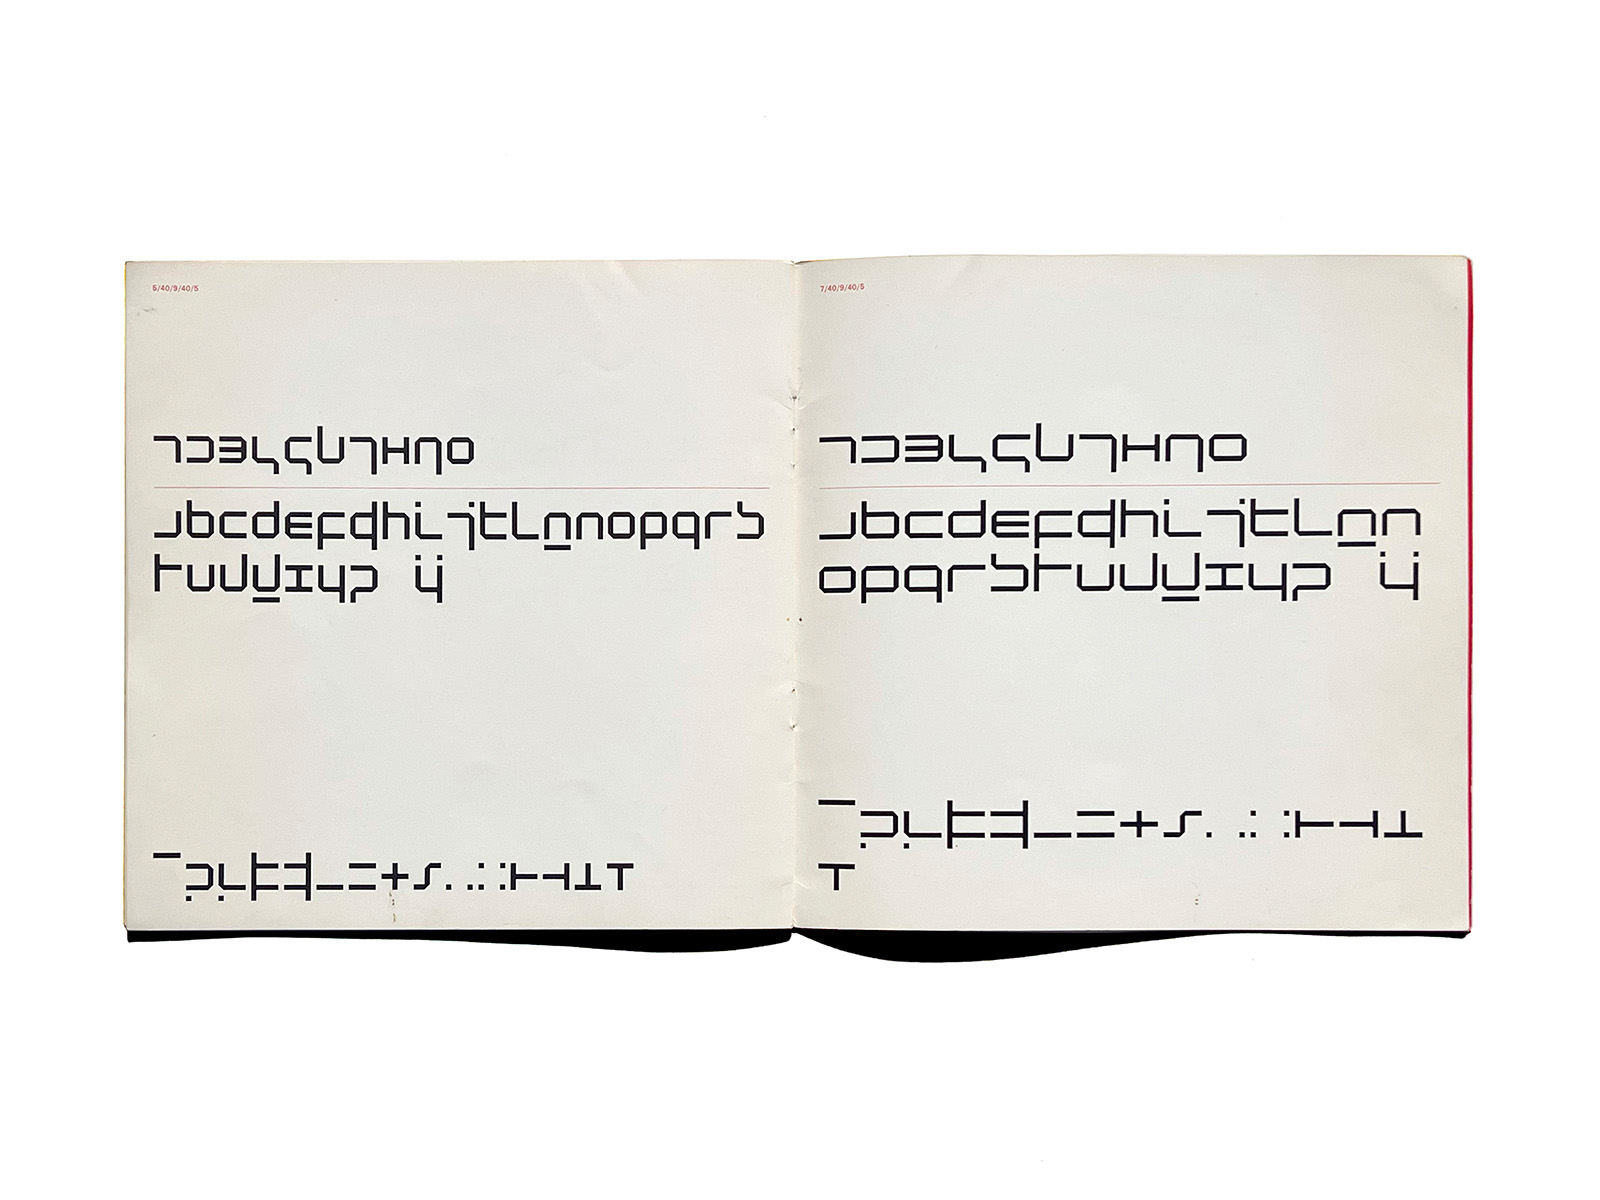 5/40/9/40/5
1234567890
abcdefghijklmnopqrs
tuvwxyz ij
7/40/9/40/5
1234567890
abcdefghijklmn
opqrstuvwxyz ij